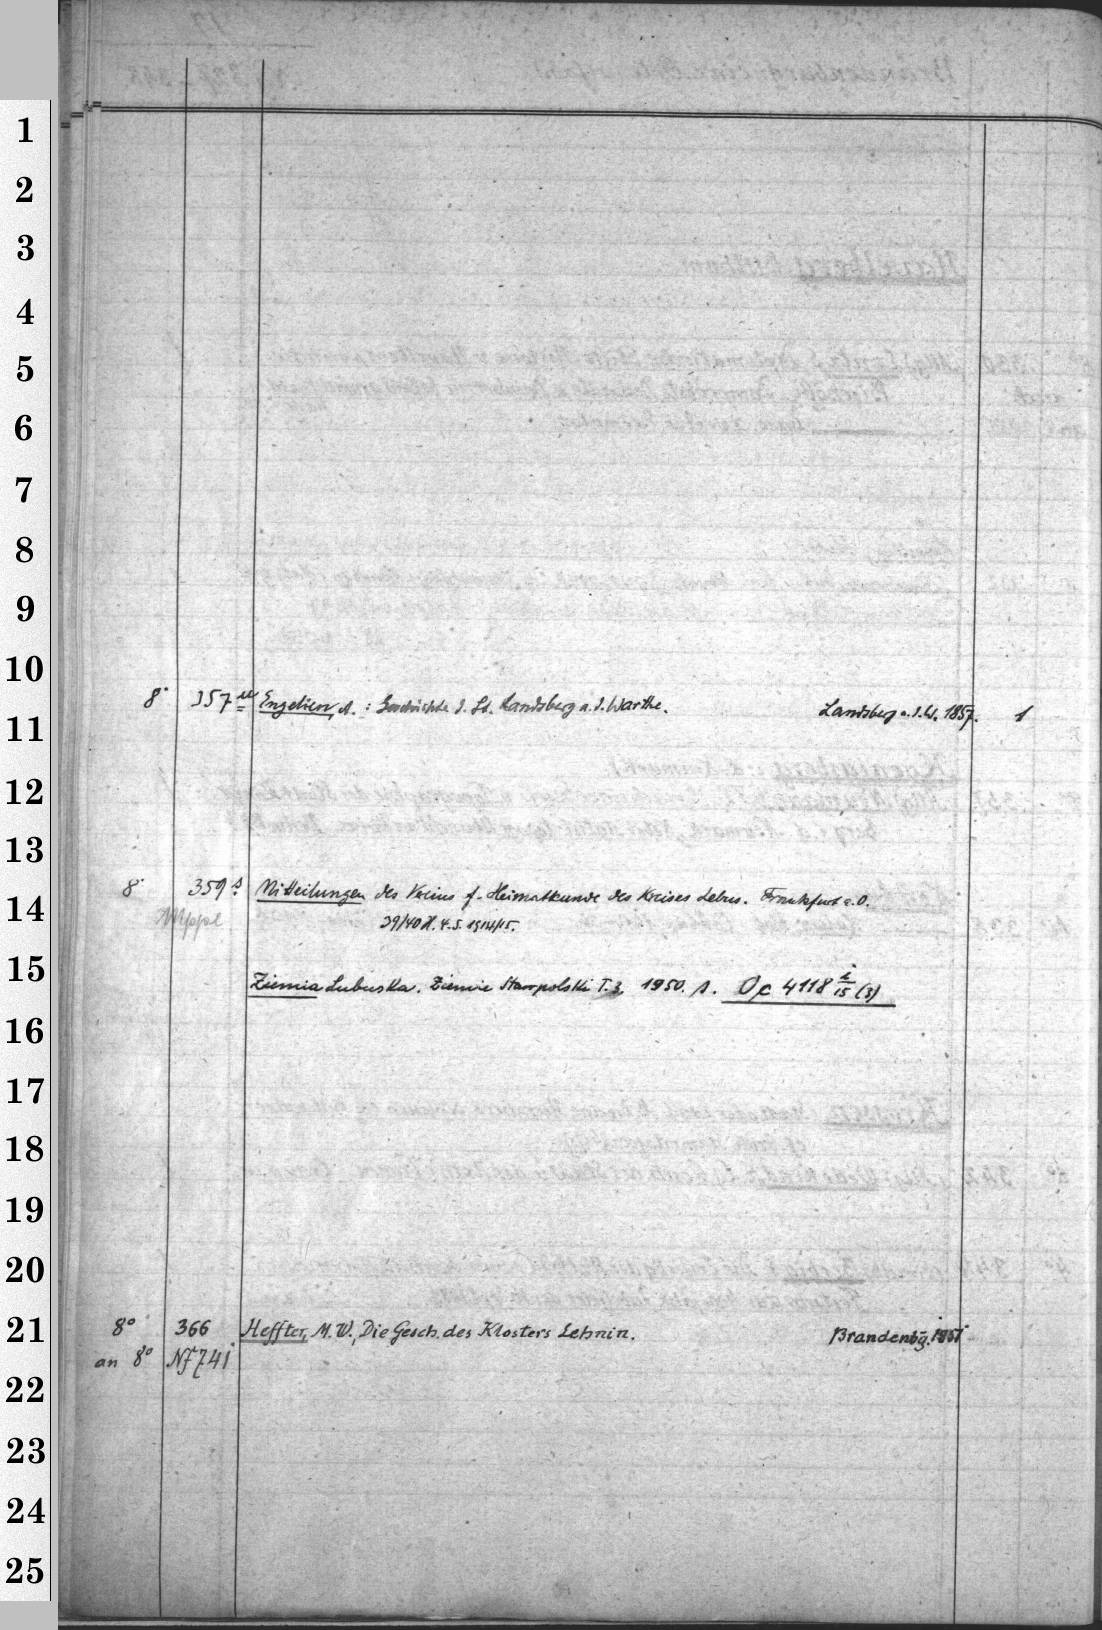 1
2
3
4
5
6
7
8
9
10
8° 357 m Engelien, A. : Geschichte d. St. Landsberg a. d. Warthe. Landsberg a. d. W. 1857. 1
11
12
13
8° 359 s Mitteilungen des Vereins f. Heimatkunde des Kreises Lebus. Frankfurt a. O.
14
Mappe 39/40 H. 4. 5. 1914/15.
15
Ziemia Lubuska. Ziemie Staropolski T. 3, 1950. s. Oc 4118 1/15 (3)
16
17
18
19
20
21
8° 366 Heffter, M. W., Die Gesch. des Klosters Lehnin. Brandenbg. 1851
an 8° Nf 741
22
23
24
25